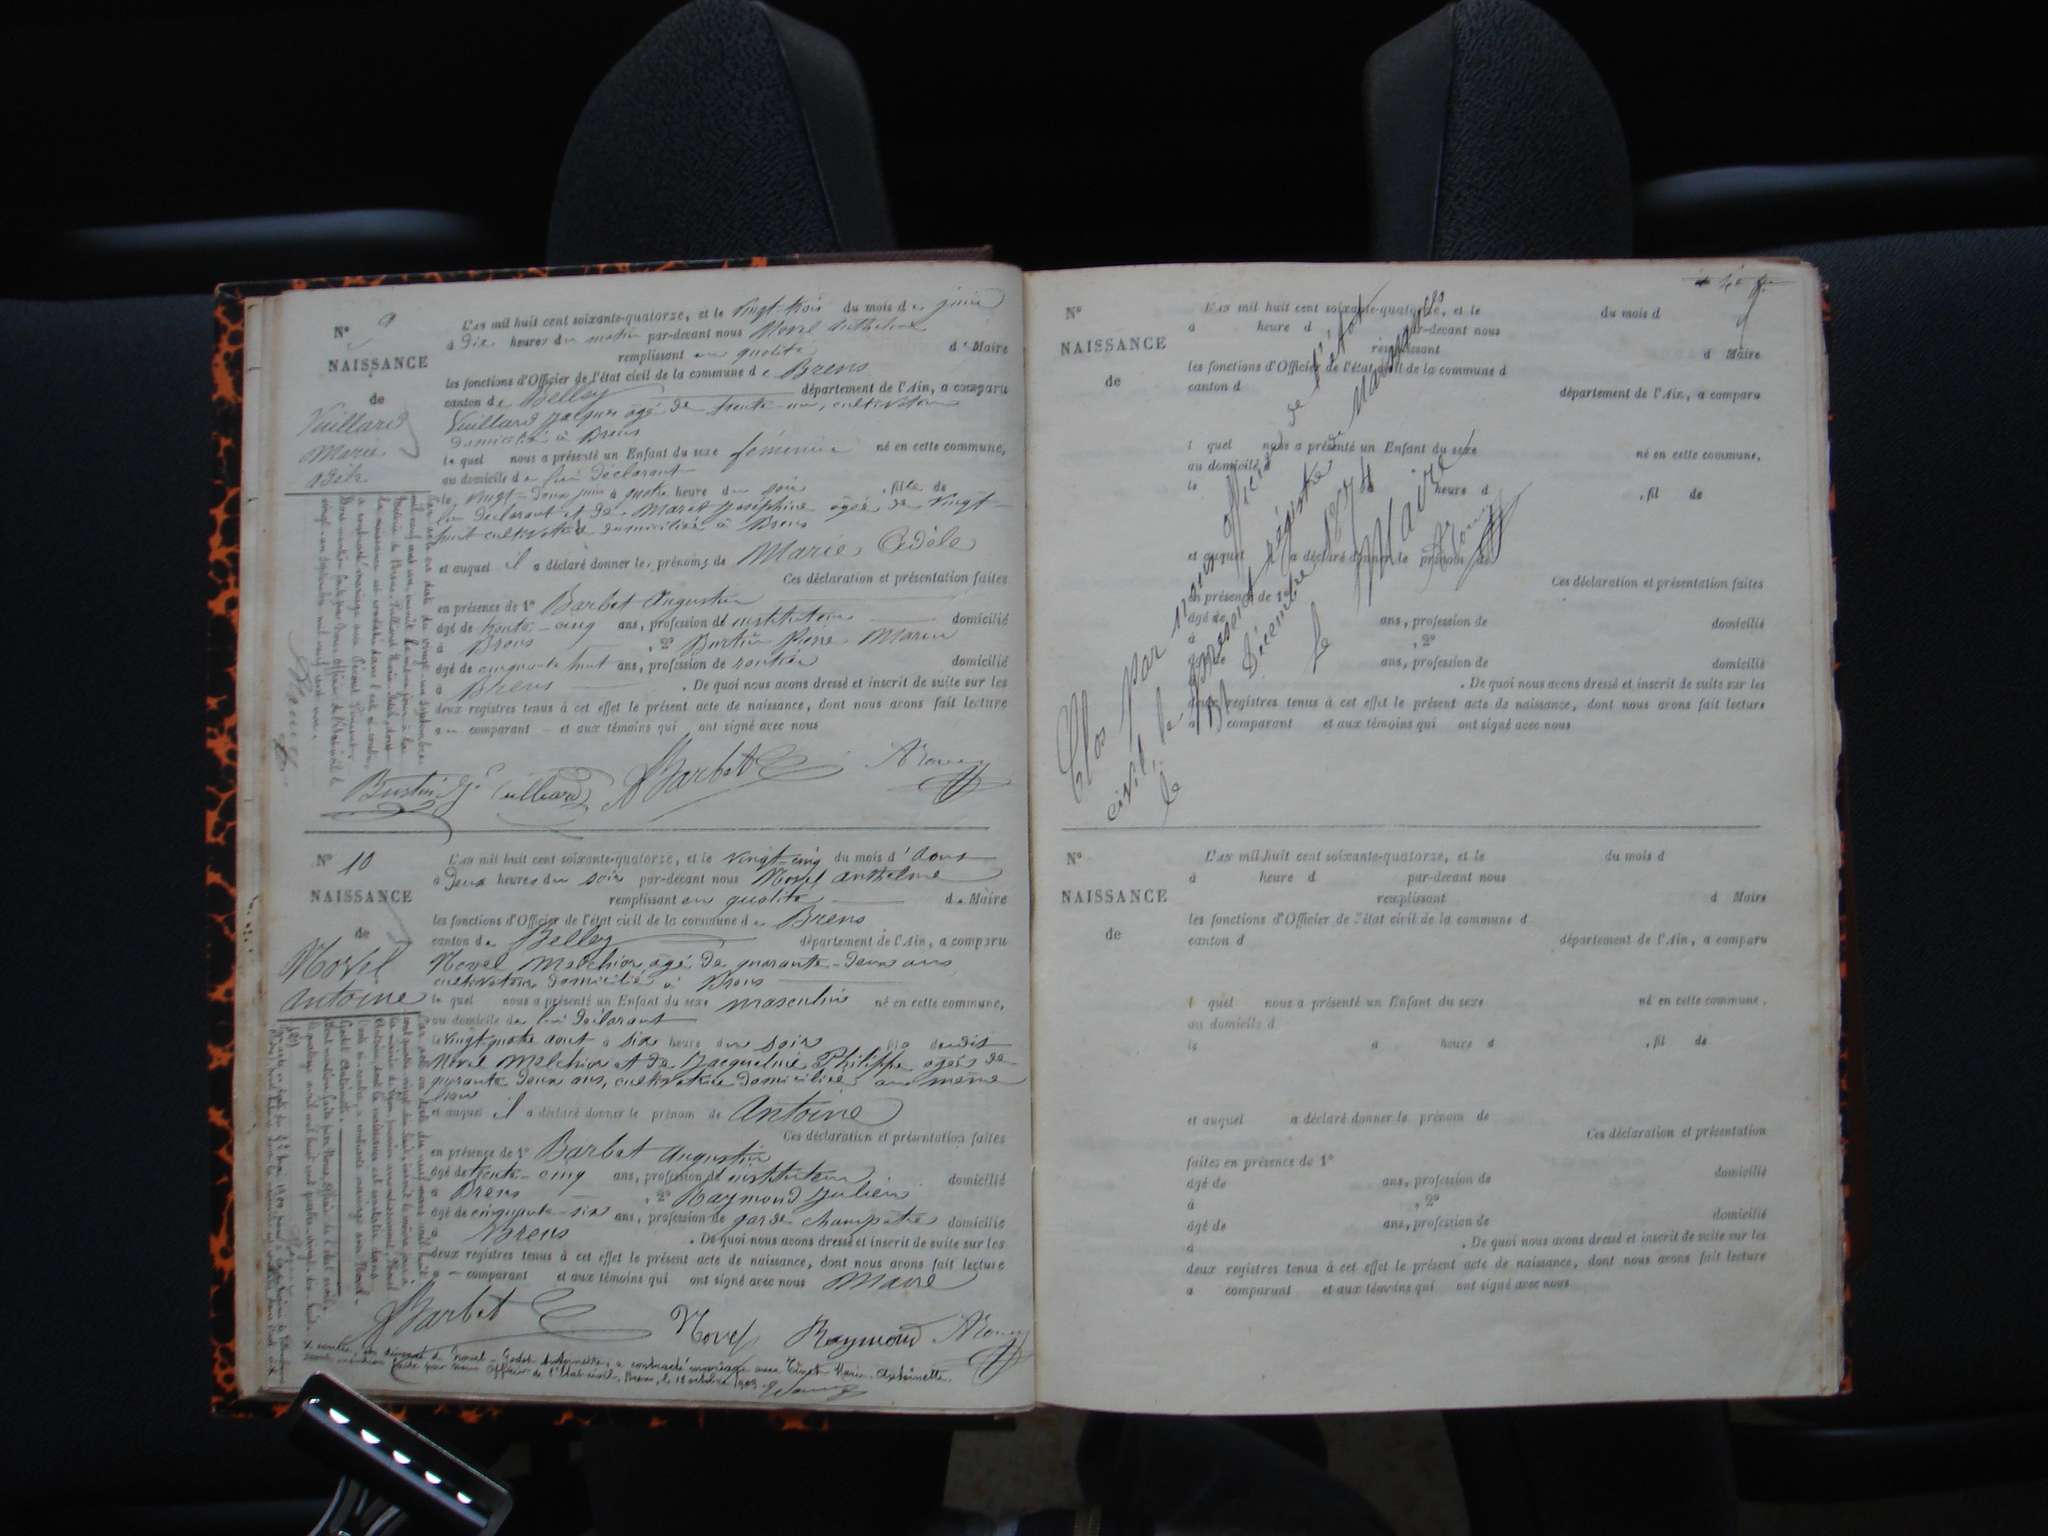 N° 9
NAISSANCE
de
Vuillard
Marie
Adèle
L'AN mil huit cent soixante-quatorze, et le vingt-trois du mois de juin
à dix heures du matin par-devant nous Novel Anthelme
remplissant en qualité d Maire
les fonctions d'Officier de l'état civil de la commune de Brens
canton de Belley département de l'Ain, a comparu
Vuillard Jacques âgé de trente-un, cultivateur
domicilié à Brens
lequel nous a présenté un Enfant du sexe féminin né en cette commune,
au domicile de lui déclarant
le vingt-deux juin à quatre heure du soir , fille de
lui déclarant et de Maret Joséphine âgée de vingt-
huit cultivatrice domiciliée à Brens
et auquel il a déclaré donner les prénoms de Marie Adèle
Ces déclaration et présentation faites
en présence de 1° Barbet Augustin
âgé de trente-cinq ans, profession de instituteur domicilié
à Brens , 2° Burtin Pierre Marie
âgé de cinquante huit ans, profession de rentier domicilié
à Brens . De quoi nous avons dressé et inscrit de suite sur les
deux registres tenus à cet effet le présent acte de naissance, dont nous avons fait lecture
au comparant et aux témoins qui ont signé avec nous
Burtin Vuillard Barbet
N° 10
NAISSANCE
de
Novel
Antoine
L'AN mil huit cent soixante-quatorze, et le vingt-cinq du mois d'Aout
à deux heures du soir par-devant nous Novel Anthelme
remplissant en qualité de Maire
les fonctions d'Officier de l'état civil de la commune de Brens
canton de Belley département de l'Ain, a comparu
Novel Melchior âgé de quarante-deux ans
cultivateur domicilié à Brens
lequel nous a présenté un Enfant du sexe masculin né en cette commune,
au domicile de lui déclarant
le vingt quatre aout à six heure du soir fils dudit
Novel Melchior et de Jacqueline Philippe âgée de
quarante deux ans, cultivatrice domiciliée au même
lieu
et auquel il a déclaré donner le prénom de Antoine
Ces déclaration et présentation faites
en présence de 1° Barbet Augustin
âgé de trente-cinq ans, profession de instituteur domicilié
à Brens , 2° Raymond Julien
âgé de cinquante-six ans, profession de garde champêtre domicilié
à Brens . De quoi nous avons dressé et inscrit de suite sur les
deux registres tenus à cet effet le présent acte de naissance, dont nous avons fait lecture
a comparant et aux témoins qui ont signé avec nous Maire
Barbet Novel Raymond
a contracté mariage avec Marie Antoinette.
mention faite par nous Officier de l'Etat-civil, Brens, le 18 octobre 1909.
N°
NAISSANCE
de
L'AN mil huit cent soixante-quatorze, et le du mois d
à heure d par-devant nous
remplissant d Maire
les fonctions d'Officier de l'état civil de la commune d
canton d département de l'Ain, a comparu
l quel nous a présenté un Enfant du sexe né en cette commune,
au domicile d
le heure d , fil de
et auquel a déclaré donner le prénom de
Ces déclaration et présentation faites
en présence de 1°
âgé de ans, profession de domicilié
à , 2°
âgé de ans, profession de domicilié
à . De quoi nous avons dressé et inscrit de suite sur les
deux registres tenus à cet effet le présent acte de naissance, dont nous avons fait lecture
a comparant et aux témoins qui ont signé avec nous
Clos par nous officier de l'état
civil, le présent régistre de naissances
le 31 Décembre 1874
le Maire
N°
NAISSANCE
de
L'AN mil huit cent soixante-quatorze, et le du mois d
à heure d par-devant nous
remplissant d Maire
les fonctions d'Officier de l'état civil de la commune d
canton d département de l'Ain, a comparu
l quel nous a présenté un Enfant du sexe né en cette commune,
au domicile d
le a heure d , fil de
et auquel a déclaré donner le prénom de
Ces déclaration et présentation
faites en présence de 1°
âgé de ans, profession de domicilié
à , 2°
âgé de ans, profession de domicilié
à . De quoi nous avons dressé et inscrit de suite sur les
deux registres tenus à cet effet le présent acte de naissance, dont nous avons fait lecture
a comparant et aux témoins qui ont signé avec nous